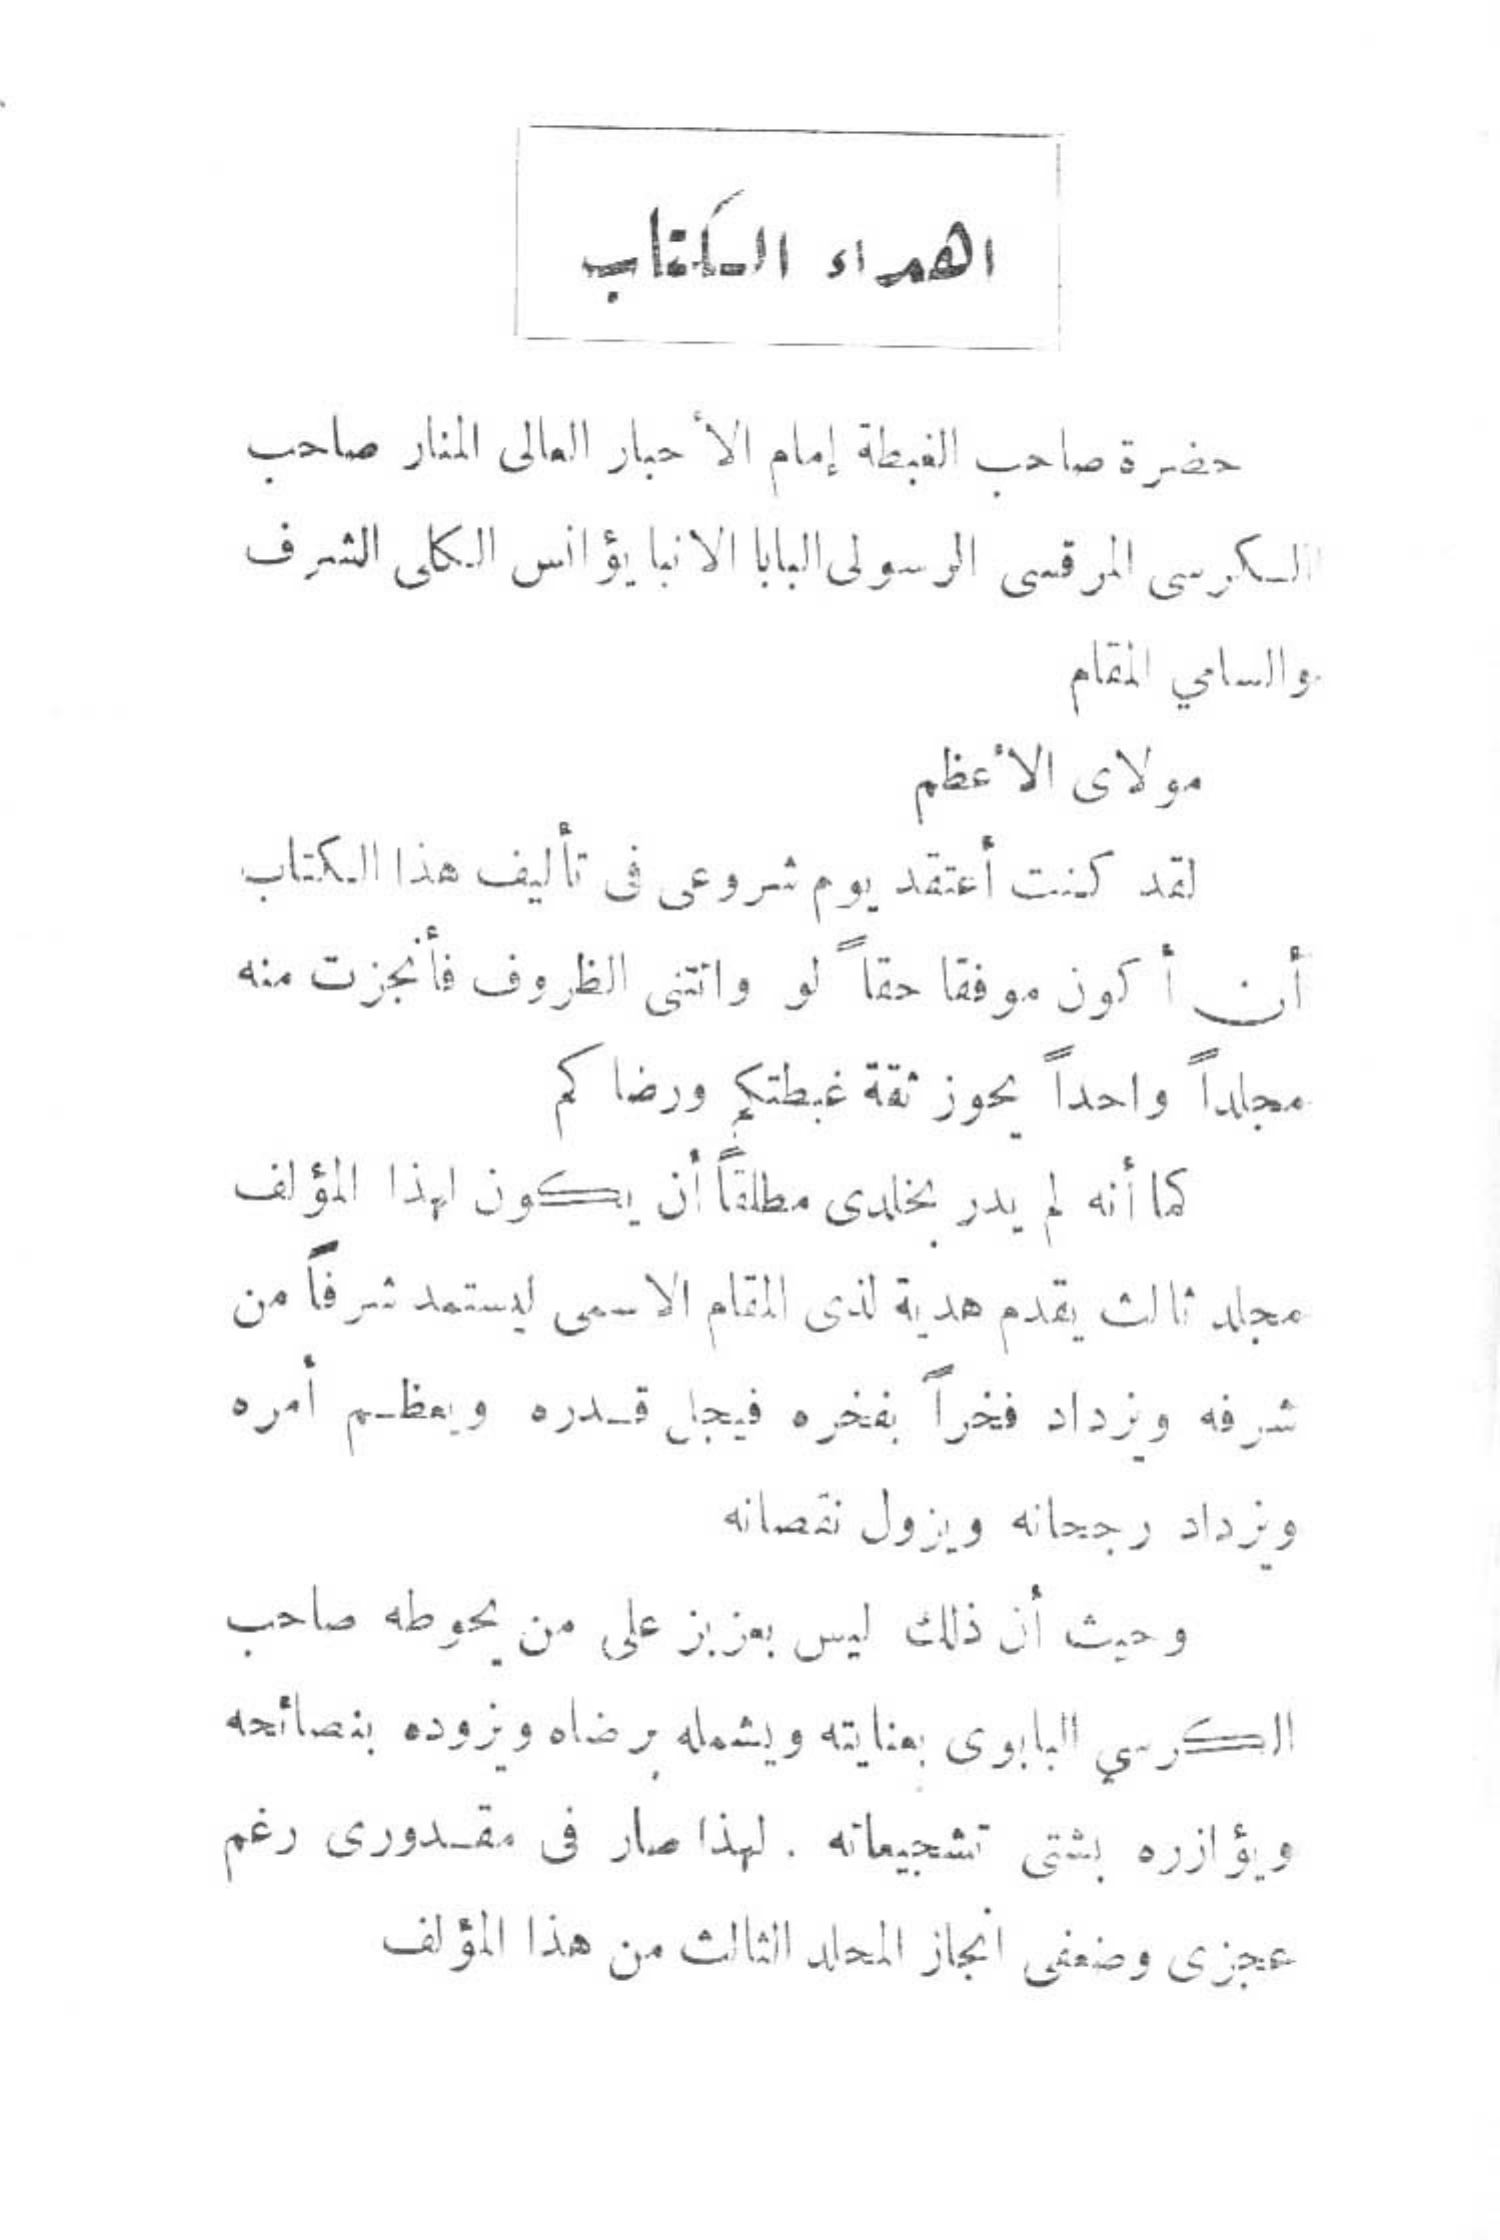 اهداء الكتاب
حضرة صاحب الغبطة إمام الأحبار العالى المنار صاحب
الكرسى المرقسى الرسولى البابا الانبا يؤانس الكلى الشرف
والسامي المقام
مولاى الأعظم
لقد كنت أعتقد يوم شروعى فى تأليف هذا الكتاب
أن أكون موفقا حقاً لو واتتنى الظروف فأنجزت منه
مجلداً واحداً يحوز ثقة غبطتكم ورضاكم
كما أنه لم يدر بخلدى مطلقاً أن يكون لهذا المؤلف
مجلد ثالث يقدم هدية لذى المقام الاسمى ليستمد شرفاً من
شرفه ويزداد فخراً بفخره فيجل قدره ويعظم أمره
ويزداد رجحانه ويزول نقصانه
وحيث أن ذلك ليس بعزيز على من يحوطه صاحب
الكرسي البابوى بعنايته ويشمله برضاه ويزوده بنصائحه
ويؤازره بشتى تشجيعاته . لهذا صار فى مقدورى رغم
عجزى وضعفى انجاز المجلد الثالث من هذا المؤلف